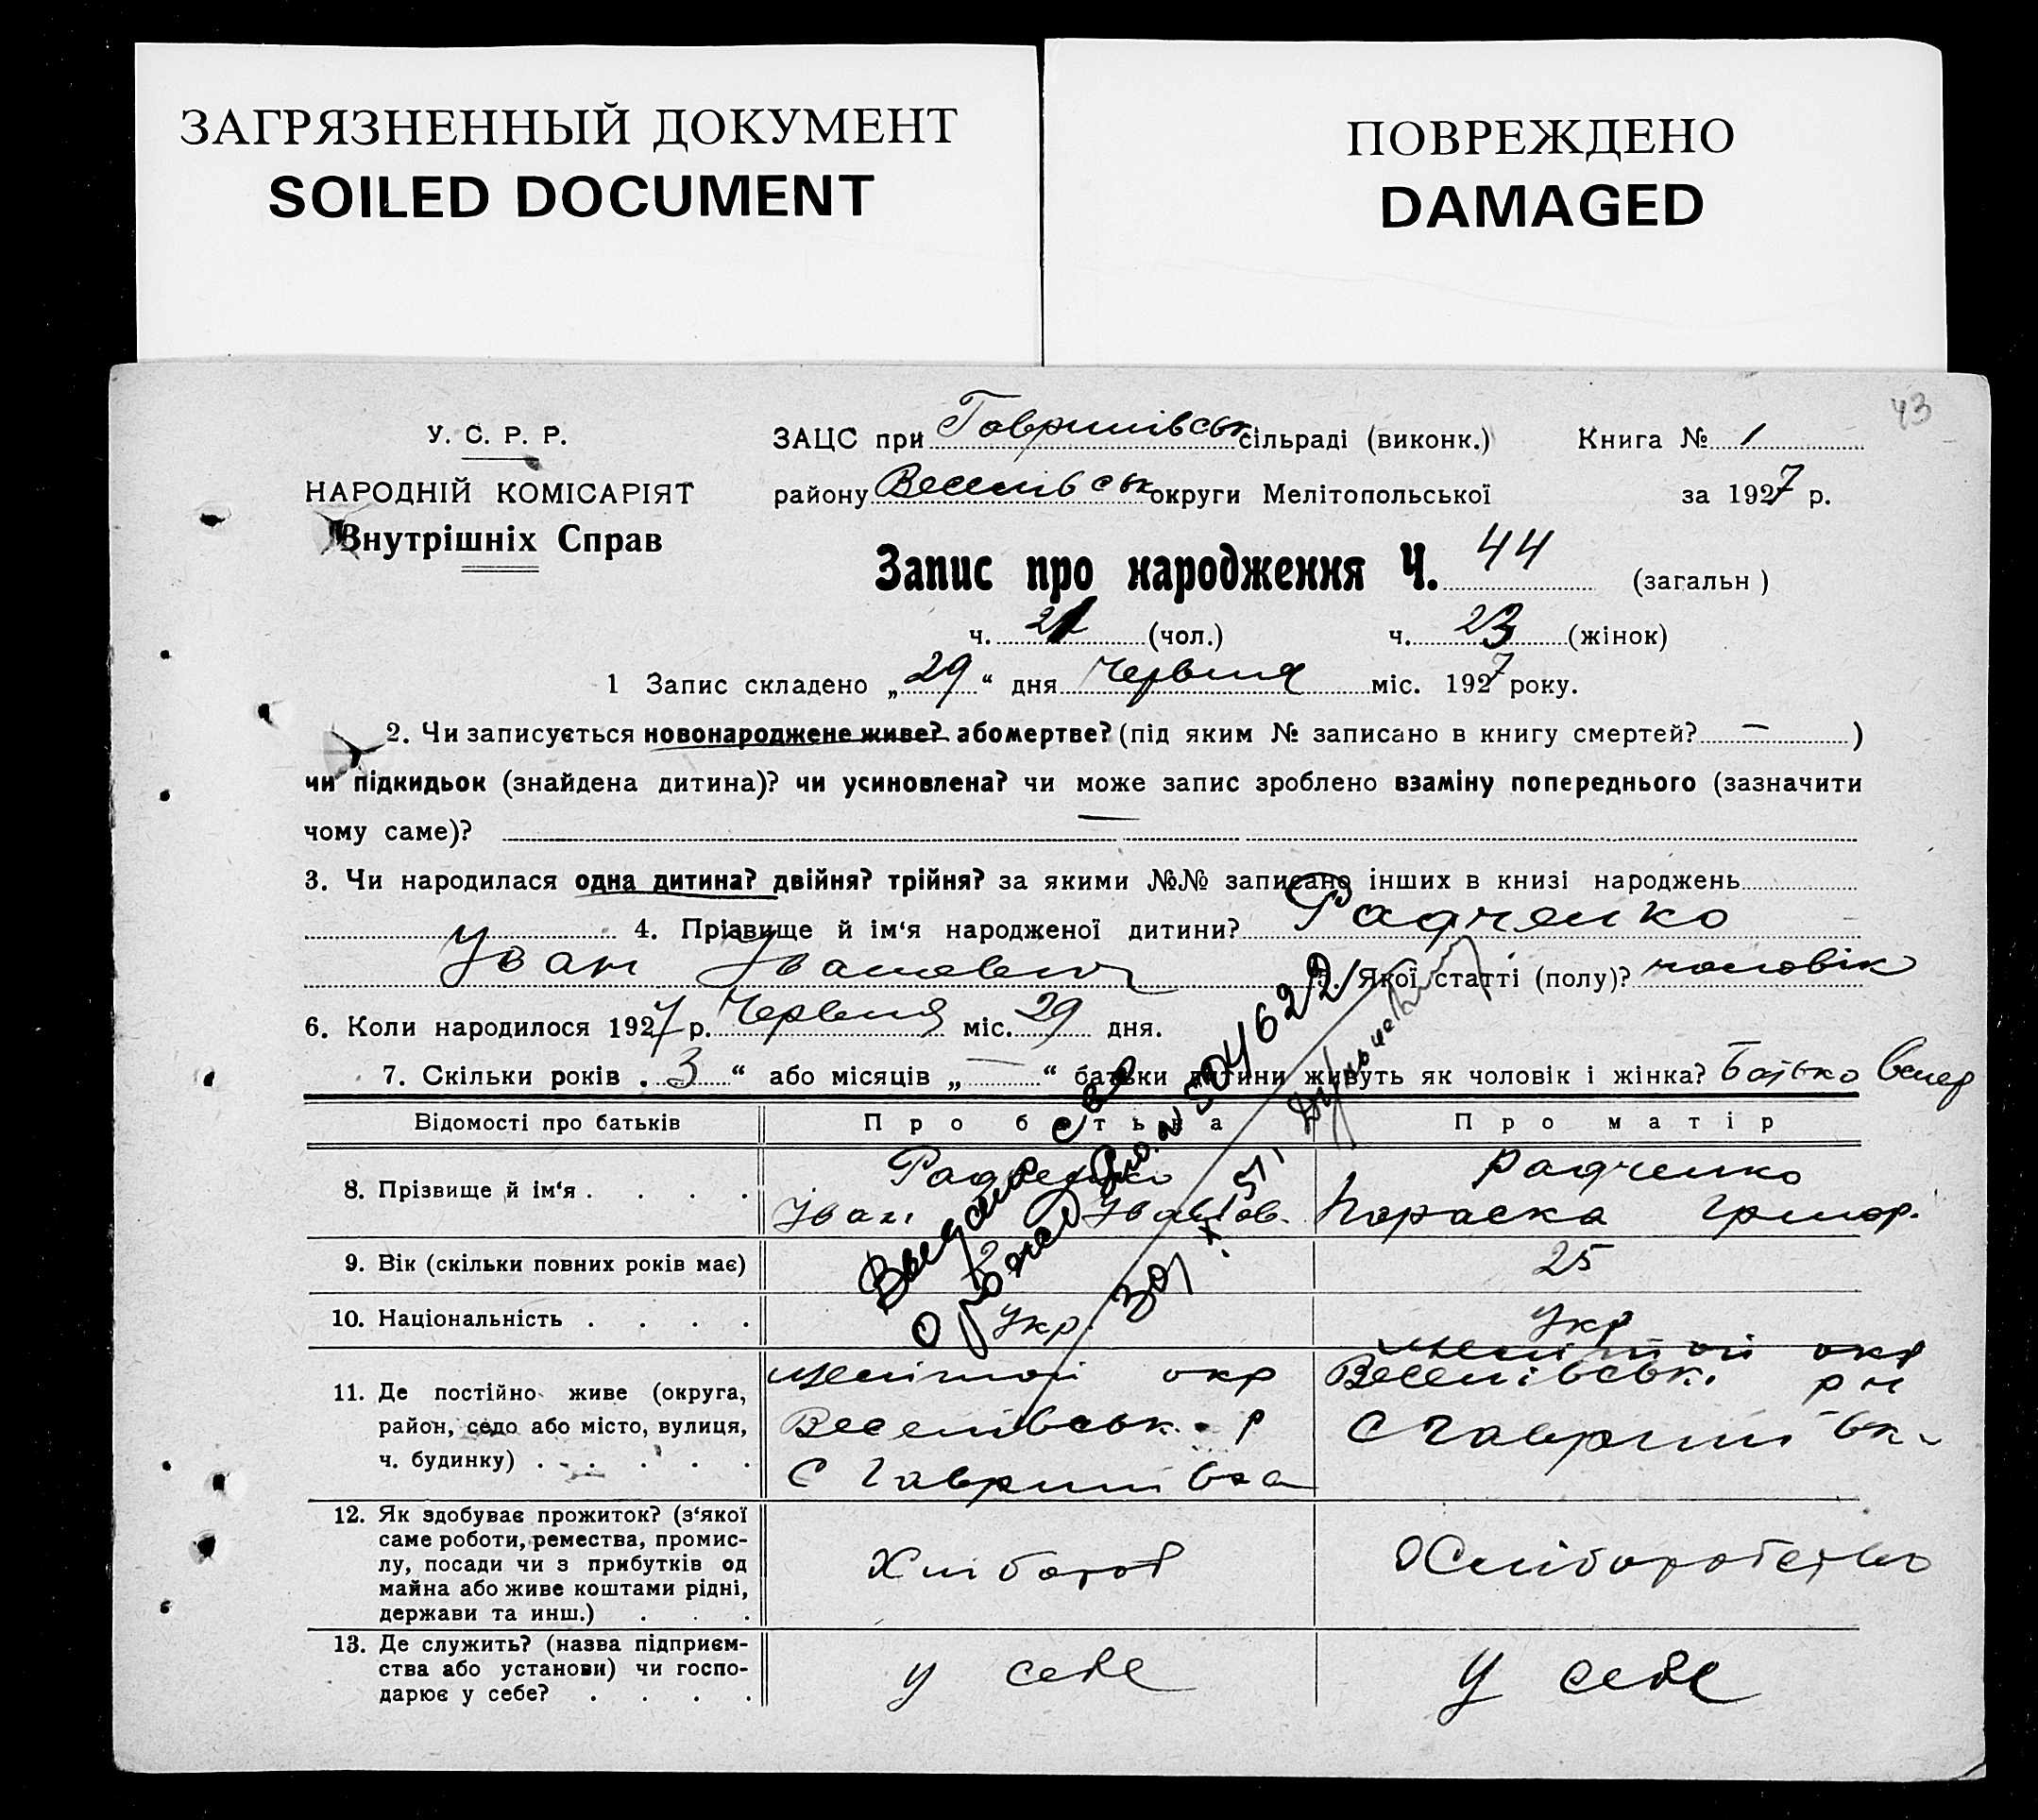 ЗАГРЯЗНЕННЫЙ ДОКУМЕНТ
SOILED DOCUMENT
ПОВРЕЖДЕНО
DAMAGED
43
У. С. Р. Р.
НАРОДНІЙ КОМІСАРІЯТ
Внутрішніх Справ
ЗАЦС при Гаврилівськ сільраді (виконк.) Книга № 1
району Веселівськ округи Мелітопольської за 1927 р.
Запис про народження Ч. 44 (загальн )
ч. 21 (чол.) ч. 23 (жінок)
1 Запис складено „29“ дня Червня міс. 1927 року.
2. Чи записується новонароджене живе? або мертве? (під яким № записано в книгу смертей? — )
чи підкидьок (знайдена дитина)? чи усиновлена? чи може запис зроблено взаміну попереднього (зазначити
чому саме)? —
3. Чи народилася одна дитина? двійня? трійня? за якими №№ записано інших в книзі народжень
4. Прізвище й ім‘я народженої дитини? Радченко
Іван Іванович 5. Якої статті (полу)? чоловік
6. Коли народилося 1927 р. Червня міс. 29 дня.
7. Скільки років „3“ або місяців „—“ батьки дитини живуть як чоловік і жінка?
Відомості про батьків Про батька Про матір
8. Прізвище й ім‘я . . . . Радченко Іван Іванов. Радченко Параска Григор.
9. Вік (скільки повних років має) 25
10. Національність . . . . Укр. Укр
11. Де постійно живе (округа,
район, седо або місто, вулиця,
ч. будинку) . . . . .
Меліпол окр
Веселівськ. р
С Гаврилівка
Меліпол окр
Веселівськ. рн
С Гаврилівк
12. Як здобуває прожиток? (з‘якої
саме роботи, ремества, промис-
лу, посади чи з прибутків од
майна або живе коштами рідні,
держави та инш.) . . .
Хлібороб
Хліборобство
13. Де служить? (назва підприєм-
ства або установи) чи госпо-
дарює у себе? . . . .
у себе
у себе